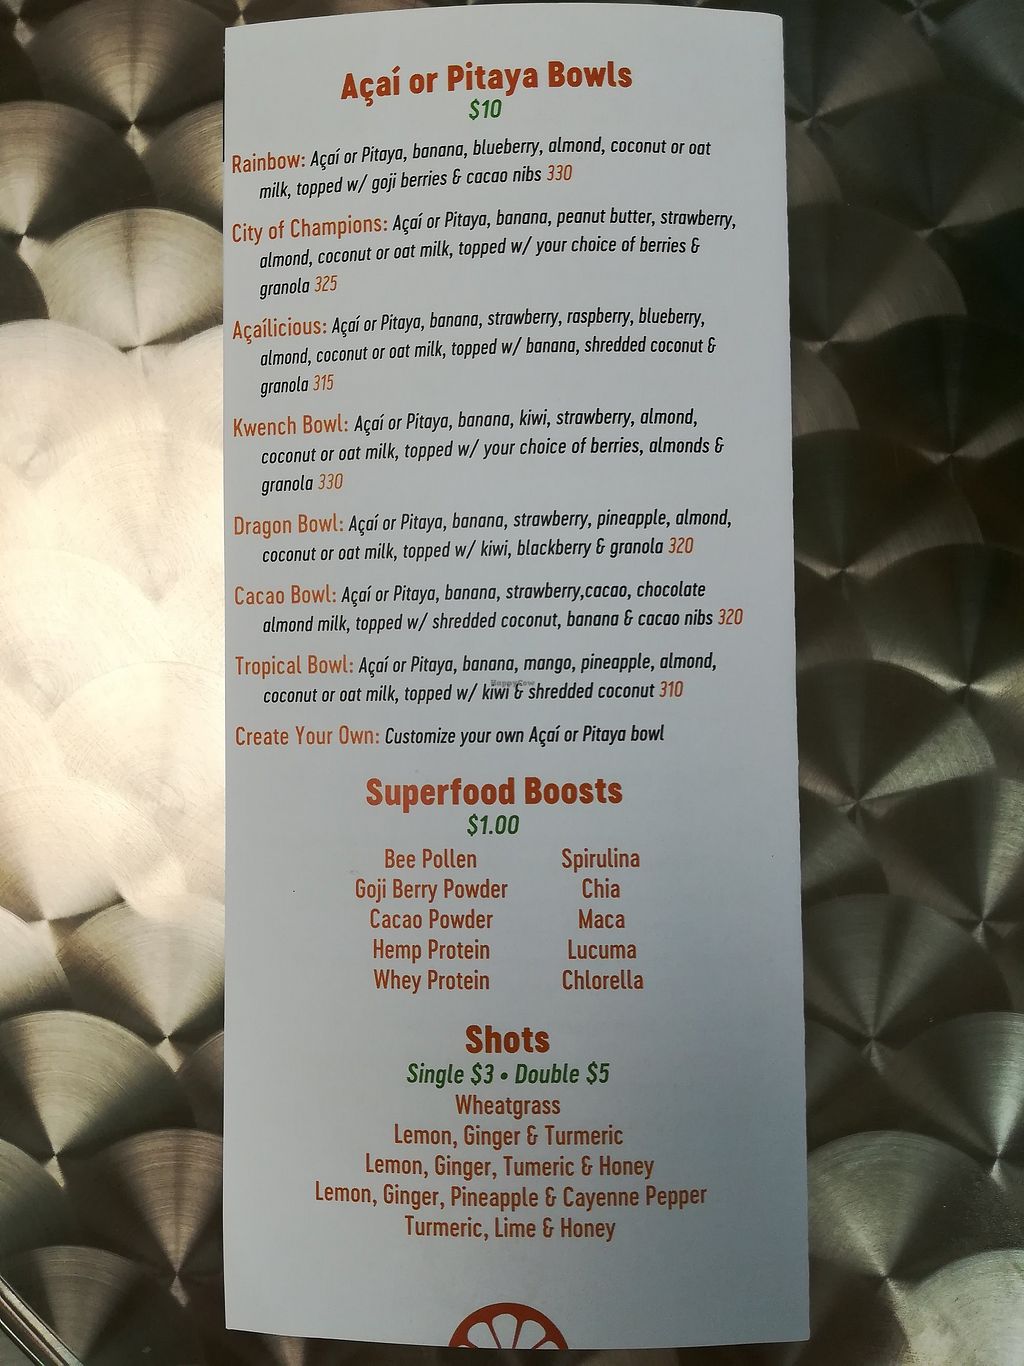 Açaí or Pitaya Bowls
$10
Rainbow: Açaí or Pitaya, banana, blueberry, almond, coconut or oat
milk, topped w/ goji berries & cacao nibs 330
City of Champions: Açaí or Pitaya, banana, peanut butter, strawberry,
almond, coconut or oat milk, topped w/ your choice of berries &
granola 325
Açaílicious: Açaí or Pitaya, banana, strawberry, raspberry, blueberry,
almond, coconut or oat milk, topped w/ banana, shredded coconut &
granola 315
Kwench Bowl: Açaí or Pitaya, banana, kiwi, strawberry, almond,
coconut or oat milk, topped w/ your choice of berries, almonds &
granola 330
Dragon Bowl: Açaí or Pitaya, banana, strawberry, pineapple, almond,
coconut or oat milk, topped w/ kiwi, blackberry & granola 320
Cacao Bowl: Açaí or Pitaya, banana, strawberry,cacao, chocolate
almond milk, topped w/ shredded coconut, banana & cacao nibs 320
Tropical Bowl: Açaí or Pitaya, banana, mango, pineapple, almond,
coconut or oat milk, topped w/ kiwi & shredded coconut 310
HappyCow
Create Your Own: Customize your own Açaí or Pitaya bowl
Superfood Boosts
$1.00
Bee Pollen Spirulina
Goji Berry Powder Chia
Cacao Powder Maca
Hemp Protein Lucuma
Whey Protein Chlorella
Shots
Single $3 • Double $5
Wheatgrass
Lemon, Ginger & Turmeric
Lemon, Ginger, Tumeric & Honey
Lemon, Ginger, Pineapple & Cayenne Pepper
Turmeric, Lime & Honey